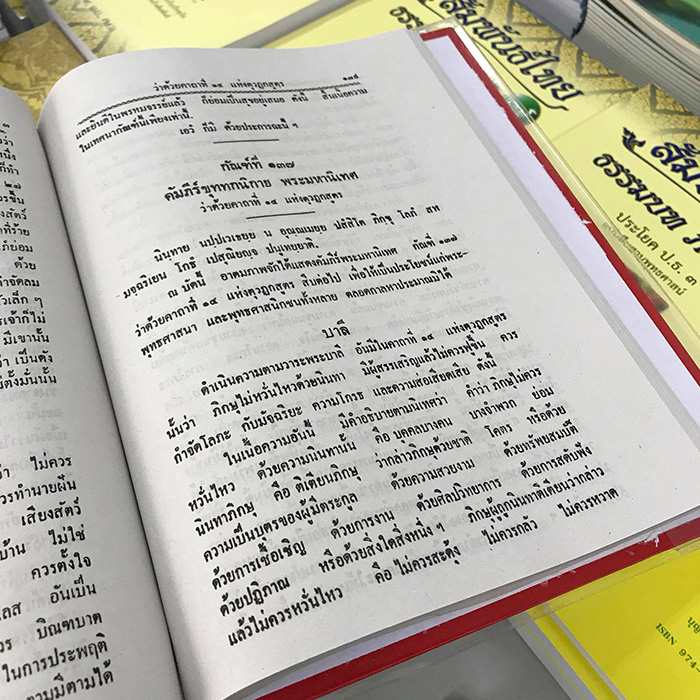 ว่าด้วยคาถาที่ ๑๔ แห่งตุวฏกสูตร
และยินดีในพรหมจรรย์แล้ว ก็ย่อมเป็นสุขอยู่เสมอ ดังนี้ สิ้นเนื้อความ
ในเทศนากัณฑ์นี้เพียงเท่านี้.
เอวํ ก็มี ด้วยประการฉะนี้ ฯ
กัณฑ์ที่ ๑๓๗
คัมภีร์ขุททกนิกาย พระมหานิเทศ
ว่าด้วยคาถาที่ ๑๔ แห่งตุวฏกสูตร
นินฺทาย นปฺปเวเธยฺย น อุณฺณเมยฺย ปสํสิโต ภิกฺขุ โลภํ สห
มจฺฉริเยน โกธํ เปสุณิยญฺจ ปนูเทยฺยาติ.
ณ บัดนี้ อาตมภาพจักได้แสดงคัมภีร์พระมหานิเทศ กัณฑ์ที่ ๑๓๗
ว่าด้วยคาถาที่ ๑๔ แห่งตุวฏกสูตร สืบต่อไป เพื่อให้เป็นประโยชน์แก่พระ-
พุทธศาสนา และพุทธศาสนิกชนทั้งหลาย ตลอดกาลหาประมาณมิได้
บาลี
ดำเนินความตามวาระพระบาลี อันมีในคาถาที่ ๑๔ แห่งตุวฏกสูตร
นั้นว่า ภิกษุไม่หวั่นไหวด้วยนินทา มีผู้สรรเสริญแล้วไม่ควรฟูขึ้น ควร
กำจัดโลภะ กับมัจฉริยะ ความโกรธ และความส่อเสียดเสีย ดังนี้
ในเนื้อความอันนี้ มีคำอธิบายตามนิเทศว่า คำว่า ภิกษุไม่ควร
หวั่นไหว ด้วยความนินทานั้น คือ บุคคลบางคน บางจำพวก ย่อม
นินทาภิกษุ คือ ติเตียนภิกษุ ว่ากล่าวภิกษุด้วยชาติ โคตร หรือด้วย
ความเป็นบุตรของผู้มีตระกูล ด้วยความสวยงาม ด้วยทรัพย์สมบัติ
ด้วยการเชื้อเชิญ ด้วยการงาน ด้วยศิลปวิทยาการ ด้วยการสดับฟัง
ด้วยปฏิภาณ หรือด้วยสิ่งใดสิ่งหนึ่งๆ ภิกษุผู้ถูกนินทาติเตียนว่ากล่าว
แล้วไม่ควรหวั่นไหว คือ ไม่ควรสะดุ้ง ไม่ควรกลัว ไม่ควรหวาด
ว่า ไม่ควร
เสียงสัตว์
บ้าน ไม่ใช่
ควรตั้งใจ
อันเป็น
บิณฑบาต
ในการประพฤติ
สัมพันธ์ไทย
ธรรมบท
ประโยค ป.ธ. ๓
ISBN 974-